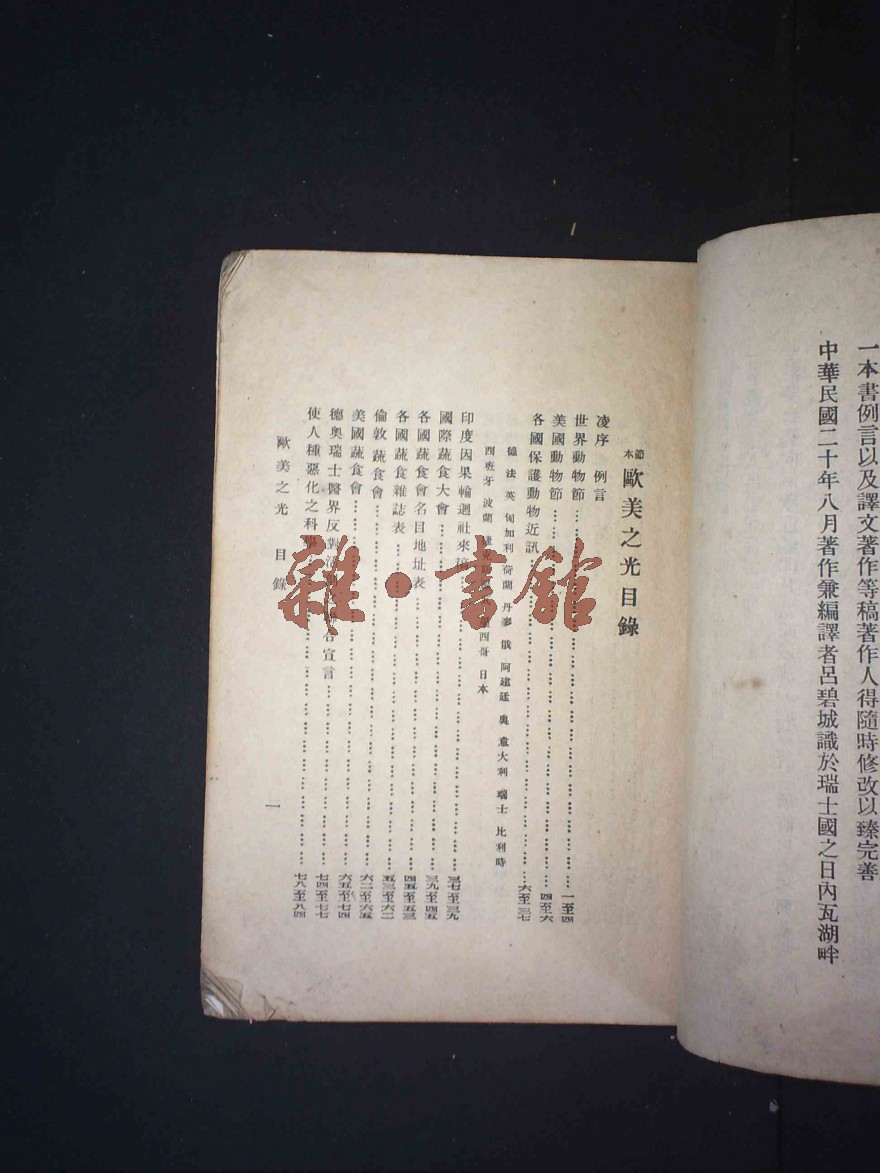 一本書例言以及譯文著作等稿著作人得隨時修改以臻完善
中華民國二十年八月著作兼編譯者呂碧城識於瑞士國之日內瓦湖畔
節本 歐美之光目錄
凌序 例言
世界動物節……一至四
美國動物節……四至六
各國保護動物近訊……六至三七
德 法 英 匈加利 荷蘭 丹麥 俄 阿建廷 奧 意大利 瑞士 比利時
西班牙 波蘭 西哥 日本
印度因果輪迴社來……三七至三九
國際蔬食大會……三九至四五
各國蔬食會名目地址表……四五至五三
各國蔬食雜誌表……五三至六二
倫敦蔬食會……六二至六五
美國蔬食會……六五至七四
德奧瑞士醫界反對活宣言……七四至七七
使人種惡化之科學……七八至八四
歐美之光 目錄
一
雜·書館